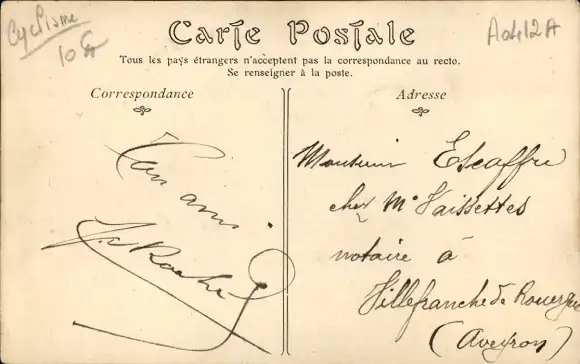 Cyclisme
10 
Carte Postale
Tous les pays étrangers n'acceptent pas la correspondance au recto.
Se renseigner à la poste.
Correspondance
Adresse
Ton ami
Monsieur Escaffre
chez Me Vaissettes
notaire à
Villefranche de Rouergue
(Aveyron)